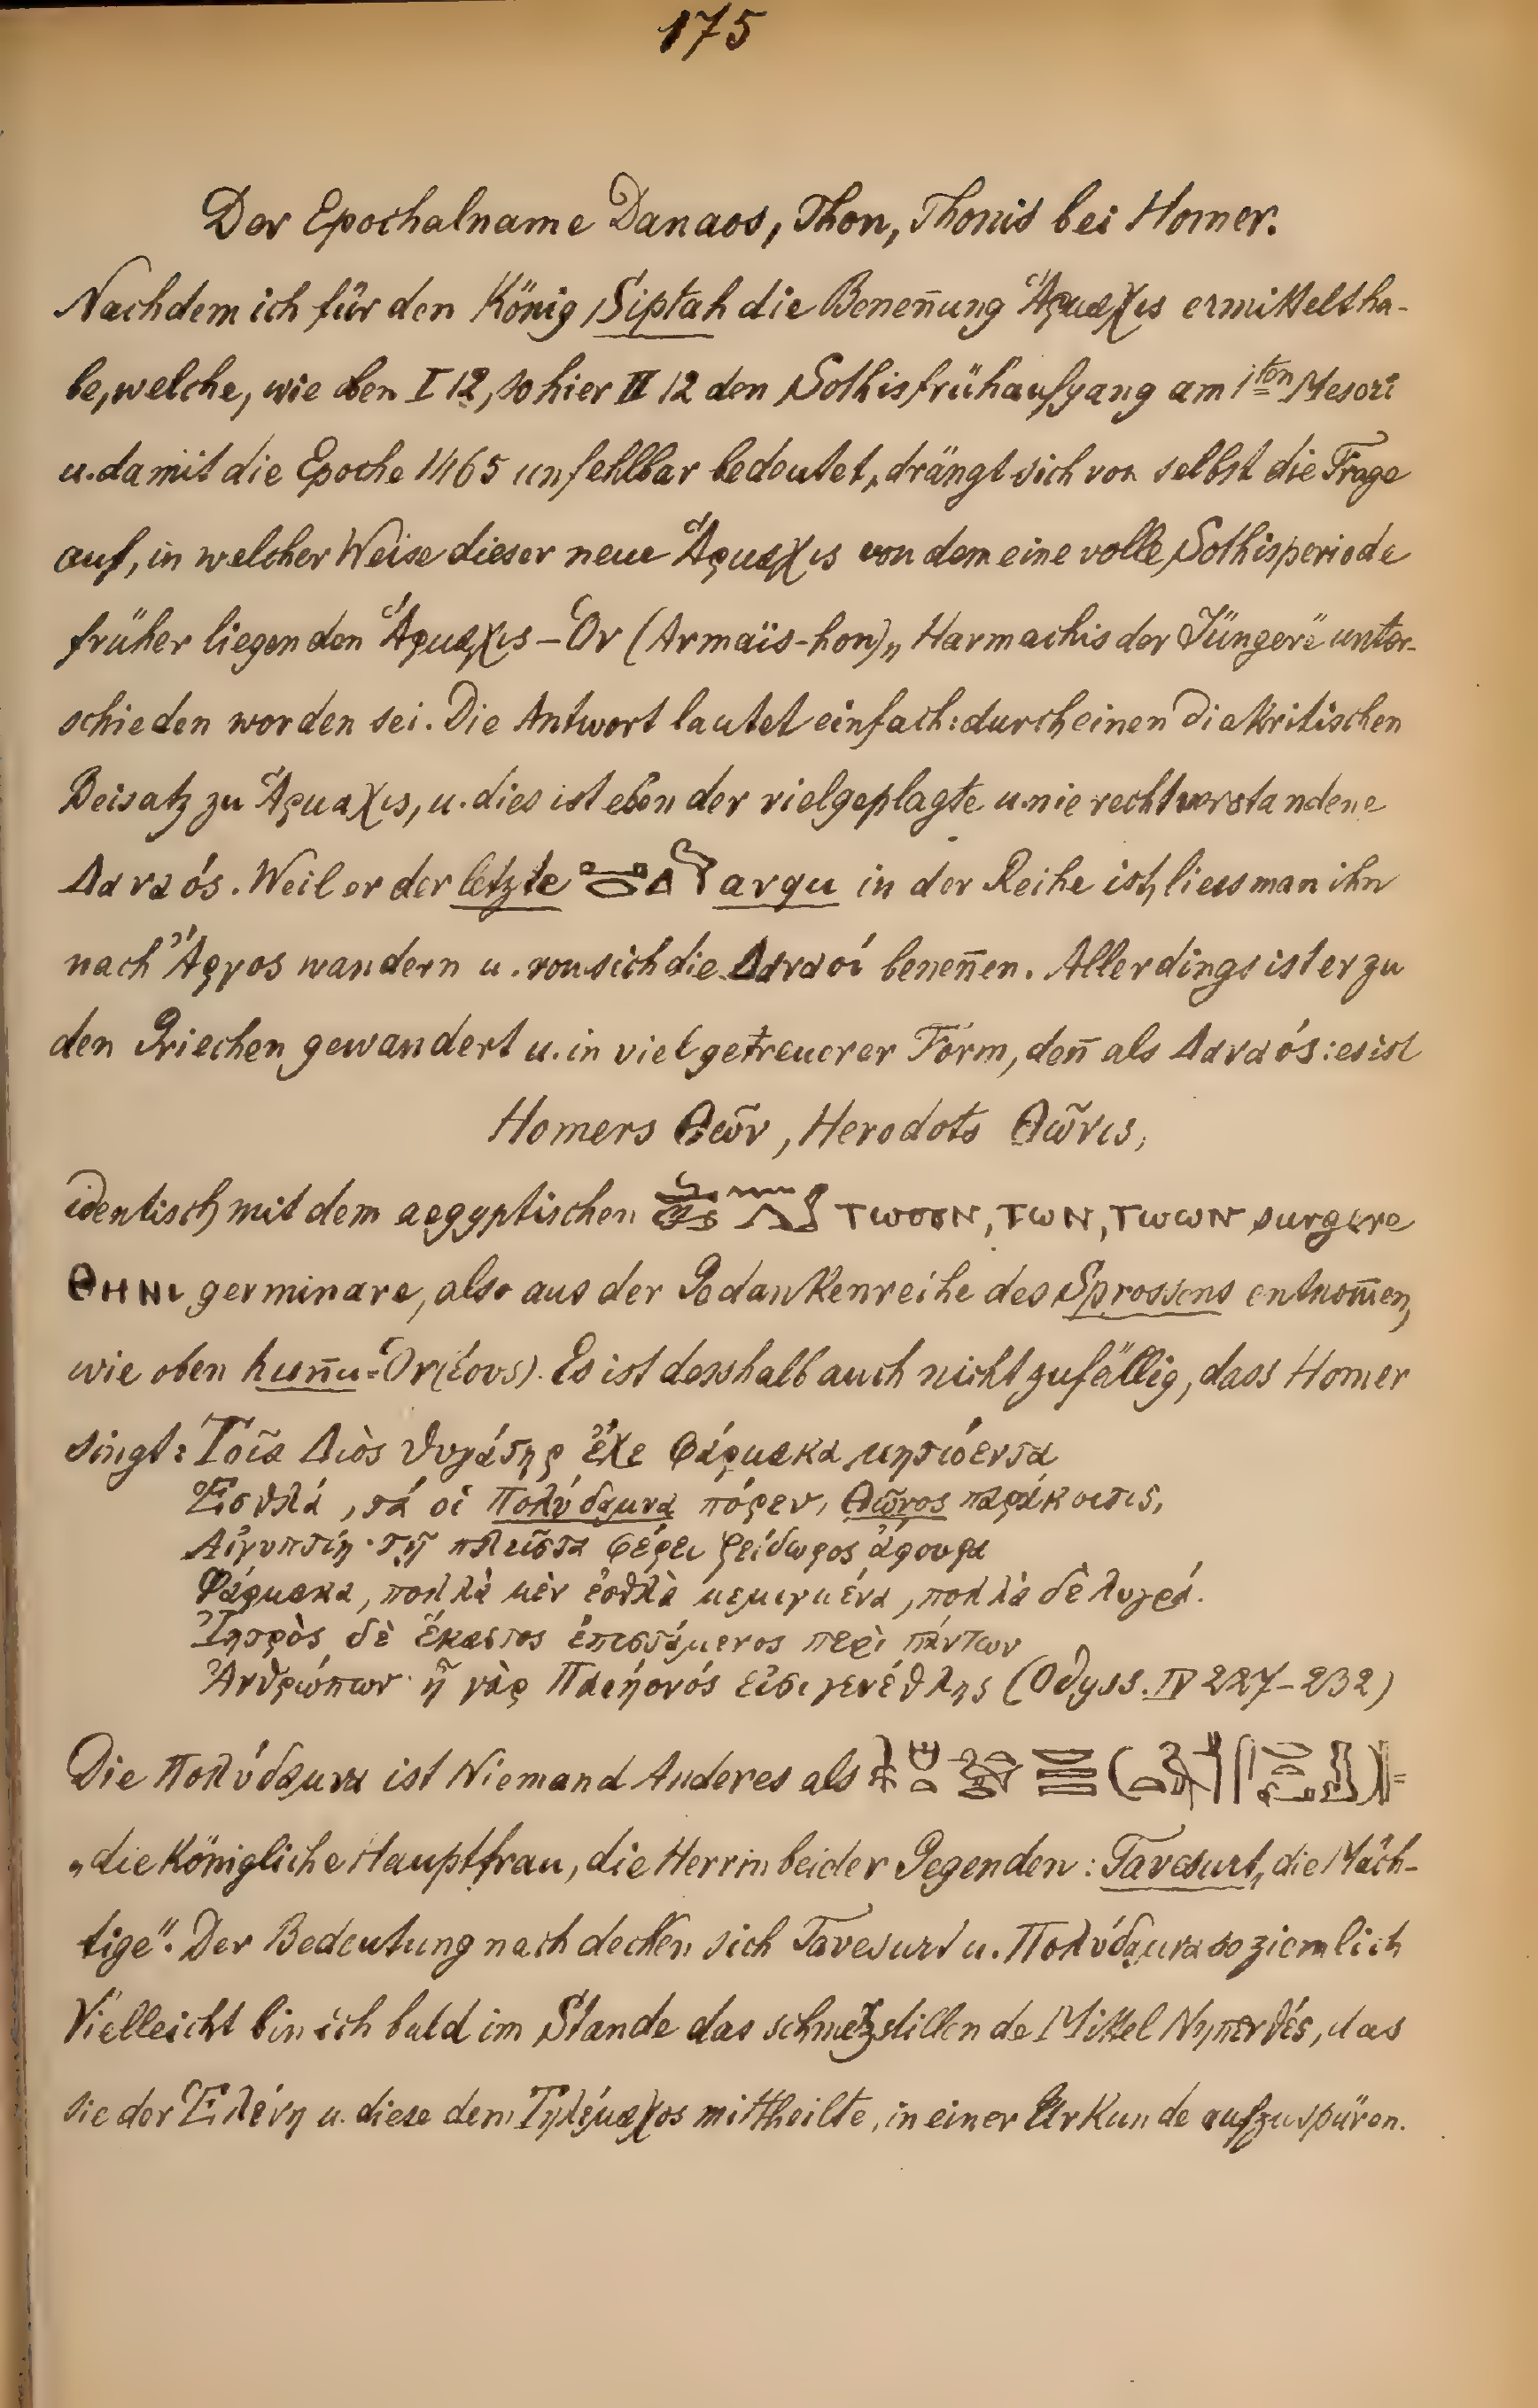 175
Der Epochalname Danaos, Thon, Thonis bei Homer.
Nachdem ich für den König Siptah die Beneñung Ἅρμαχις ermittelt ha-
be, welche, wie oben I 12, so hier II 12 den Sothisfrühaufgang am 1ten Mesori
u. damit die Epoche 1465 unfehlbar bedeutet, drängt sich von selbst die Frage
auf, in welcher Weise dieser neue Ἅρμαχις von dem eine volle Sothisperiode
früher liegenden Ἅρμαχις – Ὁr (Armaïs-hon) „Harmachis der Jüngere" unter-
schieden worden sei. Die Antwort lautet einfach: durch einen diakritischen
Beisatz zu Ἅρμαχις, u. dies ist eben der vielgeplagte u. nie recht verstandene
Δαναός. Weil er der letzte arqu in der Reihe ist, liess man ihn
nach Ἄργος wandern u. von sich die Δαναοί beneñen. Allerdings ist er zu
den Griechen gewandert u. in viel getreuerer Form, deñ als Δαναός: es ist
Homers Θῶν, Herodots Θῶνις,
identisch mit dem aegyptischen ⲧⲱⲟⲩⲛ, ⲧⲱⲛ, ⲧⲱⲱⲛ surgere
ⲑⲏⲛⲓ germinare, also aus der Gedankenreihe des Sprossens entnom̄en,
wie oben huñu-Ὁr Es ist desshalb auch nicht zufällig, dass Homer
singt: Τοῖα Διὸς θυγάτηρ ἔχε φάρμακα μητιόεντα
Ἐσθλά, τά οἱ Πολύδαμνα πόρεν, Θῶνος παράκοιτις,
Αἰγυπτίη· τῇ πλεῖστα φέρει ζείδωρος ἄρουρα
Φάρμακα, πολλὰ μὲν ἐσθλὰ μεμιγμένα, πολλὰ δὲ λυγρά.
Ἰητρὸς δὲ ἕκαστος ἐπιστάμενος περὶ πάντων
Ἀνθρώπων· ἦ γὰρ Παιήονός εἰσι γενέθλης (Odyss. IV 227–232)
Die Πολύδαμνα ist Niemand Anderes als =
„die königliche Hauptfrau, die Herrin beider Gegenden: Tavesurt, „die Mäch-
tige". Der Bedeutung nach decken sich Tavesurt u. Πολύδαμνα so ziemlich
Vielleicht bin ich bald im Stande das schmerzstillende Mittel Νηπενθές, das
sie der Ἑλένη u. diese dem Τηλέμαχος mittheilte, in einer Urkunde aufzuspüren.